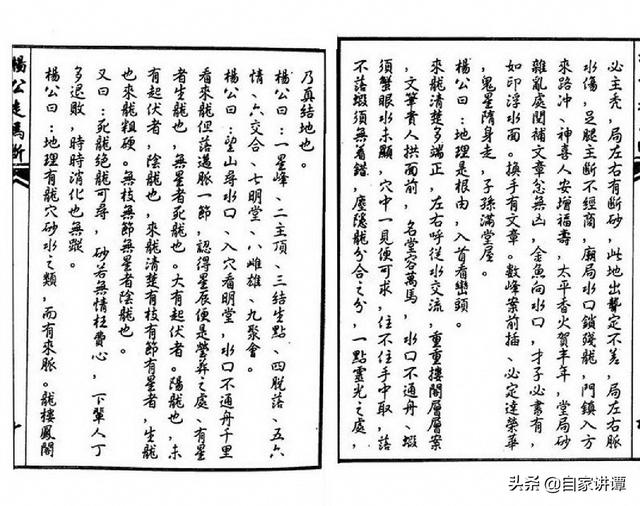 必主禿，局左右有斷砂，此地出聾定不差，局左右脈
水傷，足腿主斷不經商，廟局水口鎖殘龍，門鎮入方
來路冲、神喜人安增福壽，太平香火賀丰年，堂局砂
離亂處閑補文章忿無凶，金魚向水口，才子必書有，
如印浮水面。換手有文章。數峰案前插、必定達榮華
，鬼星隋身走，子孫滿堂屋。
楊公曰：地理是根由，入首看巒頭。
來龍清楚多端正，左右呼從水交流，重重樓閣層層案
，文筆貴人拱面前，名堂容萬馬，水口不通舟、蝦
須蟹眼水未顯，穴中一見便可求，住不住手中取，落
不落蝦須無着錯，麼隱龍分合之分，一點靈光之處，
乃真結地也。
楊公曰：一星峰、二主頂、三結生點、四脫落、五六
情、六交合、七明堂、八雌雄、九聚會。
楊公曰：望山尋水口、入穴看明堂，水口不通舟千里
看來龍但落邁脈一節，認得星辰便是塋葬之處、有星
者生龍也，無星者死龍也。大有起伏者。陽龍也，未
有起伏者，陰龍也，來龍清楚有枝有節有星者，生龍
也來龍粗硬。無枝無節無星者陰龍也。
又曰：死龍絕龍可尋，砂若無情枉費心，下輩人丁
多退敗，時時消化也無蹤。
楊公曰：地理有龍穴砂水之類，而有來脈。龍樓鳳閣
楊公走馬斷
头条 @自家讲谭